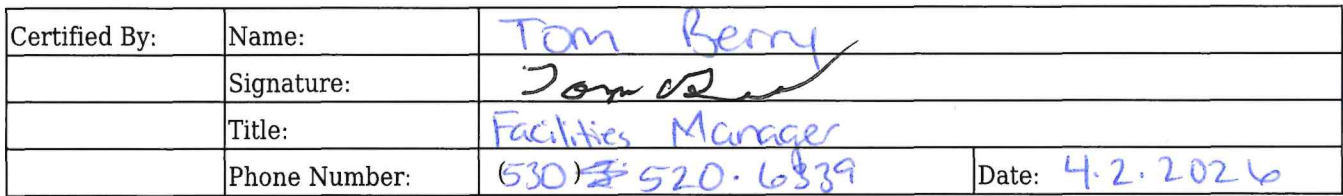 Certified By: Name: Tom Berry
Signature: Tom Be
Title: Facilities Manager
Phone Number: (530) 520.6339 Date: 4.2.2026